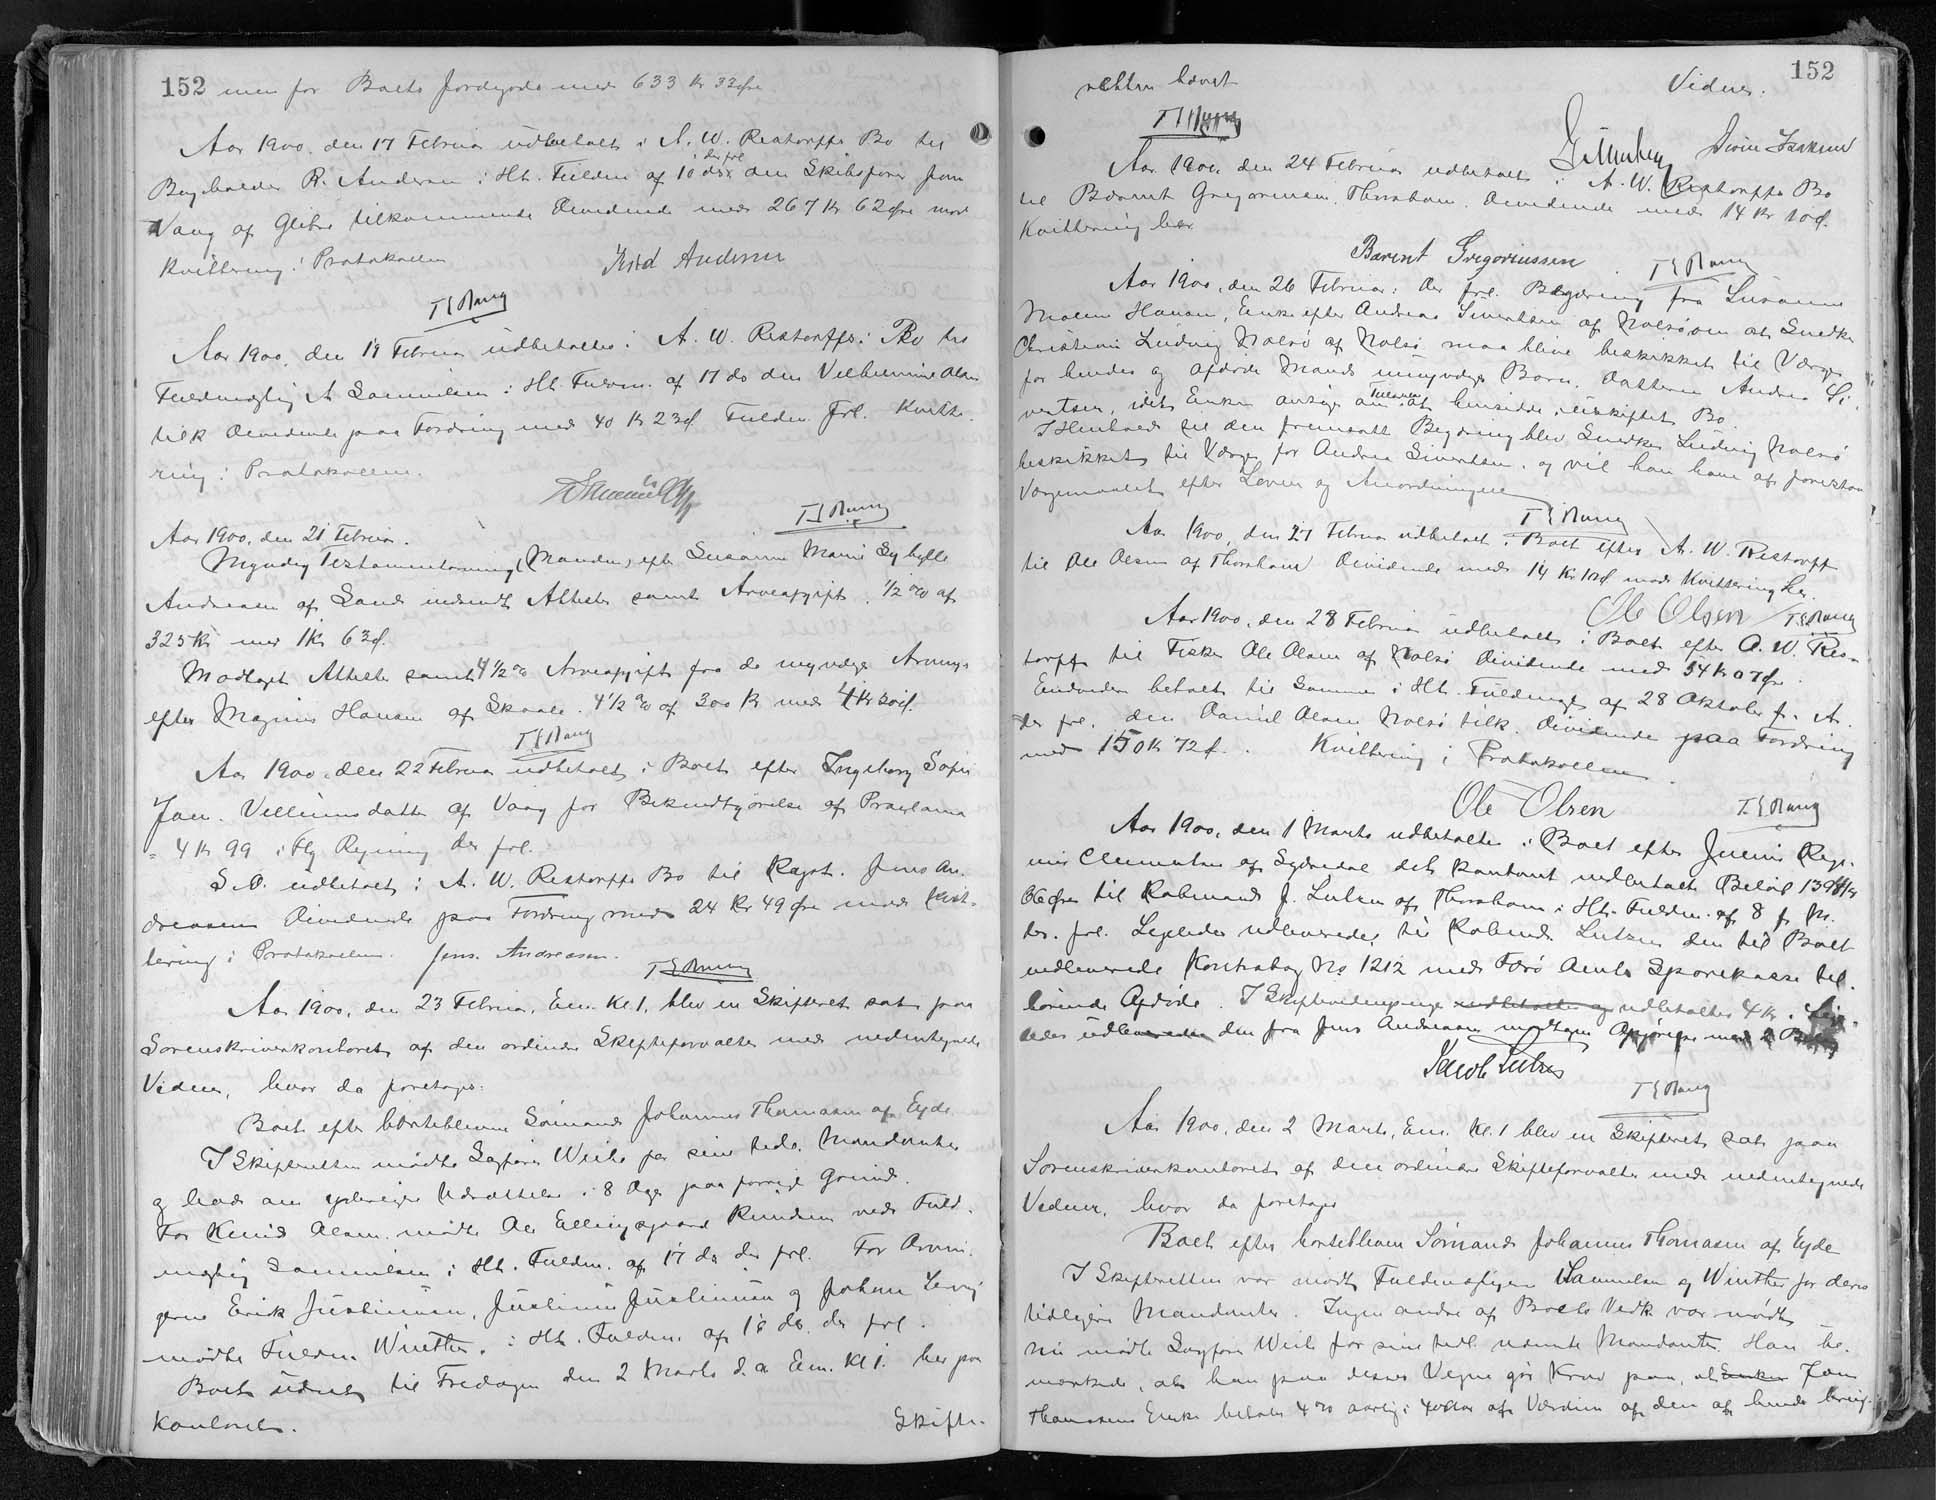 152 men for Boets Jordgods med 633 Kr 33 Øre
Aar 1900, den 17 Februar udbetalt i A. W. Restorffs Bo til
Bogholder R. Andersen i Hh. Fuldm af 10 ds der frl den Skibsfører Joen
Vaag af Glibre tilkommende Dividende med 267 Kr 62 Øre mod
Kvittering i Protokollen
Andersen
T S Mung
Aar 1900, den 19 Februar udbetaltes i A. W. Restorffs Bo til
Fuldmægtig A Samuelsen i Hh. Fuldm. af 17 ds den Vilhelmine Olsen
tilk Dividende paa Fordring med 40 Kr 23 Ø Fuldm frl. Kvitte-
ring i Protokollen.
Samuelsen
T S Mung
Aar 1900, den 21 Februar.
Myndig Testamentarving (Manden) efter Susanne Marie Sybylle
Andreasen af Sand indsendt Attester samt Arveafgift 1/2 % af
325 Kr med 1 Kr 63 Ø.
Modtaget Attester samt 4 1/2 % Arveafgift fra de myndige Arvinger
efter Magnus Hansen af Skaale. 4 1/2 % af 300 Kr med
T S Mung
Aar 1900, den 22 Februar udbetalt i Boet efter Ingeborg Sofie
Joen. Villiumsdatter af Vaag for Bekendtgjørelse af Proclama
= 4 Kr 99 i Flg Regning der frl.
S. D. udbetalt i A. W. Restorffs Bo til Kapt. Jens An-
dreasen Dividende paa Fordring med 24 Kr 49 Øre mod Kvit-
tering i Protokollen. Jens. Andreasen.
T S Mung
Aar 1900, den 23 Februar, Em. Kl. 1, blev en Skifteret sat paa
Sorenskriverkontoret af den ordinære Skifteforvalter med undertegnede
Vidner, hvor da foretages:
Boet efter bortblevne Sømand Johannes Thomasen af Ejde
I Skifteretten mødte Sagfører Weihe for sine tidl. Mandanter
og bad om yderligere Udsættelse i 8 Dage paa forrige Grund.
For Knud Olsen mødte Ole Ellingsgaard Knudsen ved Fuld-
mægtig Samuelsen i Hh. Fuldm. af 17 ds der frl. For Arvin-
gerne Erik Justinussen, Justinus Justinussen og Johan
mødte Fuldm. Winther i Hh. Fuldm. af 18 ds. der frl.
Boet udsat til Fredagen den 2 Marts d. a Em. Kl 1. her paa
Kontoret.
Skifte-
152
retten hævet
Vidner.
T S Mung
Aar 1900, den 24 Februar udbetalt i A. W. Restorffs Bo
til Barent Gregoriussen, Thorshavn, Dividende med 14 Kr 10 Ø.
Kvittering her
Barent Gregoriussen
T S Mung
Aar 1900, den 26 Februar: der frl. Begæring fra Susanne
Malene Hansen, Enke efter Andreas Sivertsen af Nolsø om at Snedker
Christian Ludvig Nolsø af Nolsø maa blive beskikket til Værge
for hendes og afdøde Mands umyndige Barn, Datteren Andrea Si-
vertsen, idet Enken ansøger om Tilladelse at hensidde i uskiftet Bo.
I Henhold til den fremsatte Begæring blev Snedker Ludvig Nolsø
beskikket til Værge for Andrea Sivertsen, og vil han have at forestaa
Værgemaalet efter Loven og Anordningerne
T S Mung
Aar 1900, den 27 Februar udbetalt i Boet efter A. W. Restorff
til Ole Olsen af Thorshavn Dividende med 14 Kr 10 Ø mod Kvittering her.
Ole Olsen / T S Mung
Aar 1900, den 28 Februar udbetalt i Boet efter A. W. Res-
torff til Fisker Ole Olsen af Nolsø Dividende med 54 Kr 07 Øre.
Endvidere betalt til Samme i Hh. Fuldmagt af 28 Oktober f. A.
der frl. den Daniel Olsen Nolsø tilk. Dividende paa Fordring
med 150 Kr 72 Ø. Kvittering i Protokollen.
Ole Olsen
T. S Mung
Aar 1900, den 1 Marts udbetaltes i Boet efter Junis Regi-
nus Clementsen af Sydredal det kontant indbetalte Beløb 1394 Kr
06 Øre til Kobmand J. Lutzen af Thorshavn i Hh. Fuldm. af 8 f. M.
der frl. Ligeledes udleveredes til Købmd. Lutzen den til Boet
indleverede Kontrabog No 1212 med Færø Amts Sparekasse til-
hørende Afdøde. I Skiftevidnepenge udbetaltes 4 Kr. Lige-
ledes udleveredes den fra Jens Andreasen modtagne Opgørelse med 2 Bilag
Jacob Lutzen
T S Mung
Aar 1900, den 2 Marts, Em. Kl. 1 blev en Skifteret sat paa
Sorenskriverkontoret af den ordinære Skifteforvalter med undertegnede
Vidner, hvor da foretages
Boet efter bortblevne Sømand Johannes Thomasen af Ejde
I Skifteretten var mødt Fuldmægtigene Samuelsen og Winther for deres
tidligere Mandanter. Ingen andre af Boets Vedk var mødt
Nu mødte Sagfører Weihe for sine tidl. nævnte Mandanter. Han be-
mærkede, at han paa disses Vegne gør Krav paa, at Enken Joen
Thomasens Enke betaler 4 % aarlig i 40 Aar af Værdien af den af hende brug-